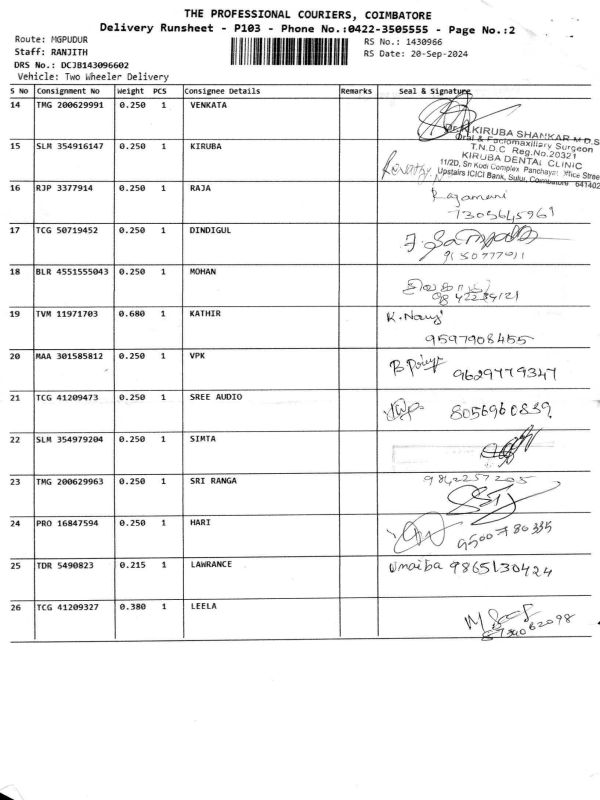 THE PROFESSIONAL COURIERS, COIMBATORE
Delivery Runsheet - P103 - Phone No.:0422-3505555 - Page No.:2
Route: MGPUDUR
RS No.: 1430966
Staff: RANJITH
RS Date: 20-Sep-2024
DRS No.: DCJB143096602
Vehicle: Two Wheeler Delivery
S No Consignment No Weight PCS Consignee Details Remarks Seal & Signature
14 TMG 200629991 0.250 1 VENKATA
KIRUBA SHANKAR M.D.S
Oral & Faciomaxillary Surgeon
T.N.D.C Reg.No.20321
KIRUBA DENTAL CLINIC
11/2D, Sri Kodi Complex Panchayat Office Stree
Upstairs ICICI Bank, Sulur, Coimbatore 641402
15 SLM 354916147 0.250 1 KIRUBA
16 RJP 3377914 0.250 1 RAJA
Rajamani
7305645961
17 TCG 50719452 0.250 1 DINDIGUL
9150777011
18 BLR 4551555043 0.250 1 MOHAN
19 TVM 11971703 0.680 1 KATHIR K.
9597908455
20 MAA 301585812 0.250 1 VPK 9629779347
21 TCG 41209473 0.250 1 SREE AUDIO 8056960839
22 SLM 354979204 0.250 1 SIMTA
23 TMG 200629963 0.250 1 SRI RANGA 9842257205
24 PRO 16847594 0.250 1 HARI 9500780335
25 TDR 5490823 0.215 1 LAWRANCE Umaiba 9865130424
26 TCG 41209327 0.380 1 LEELA